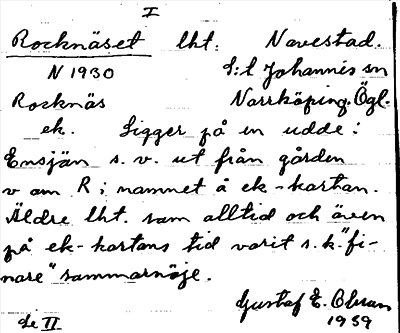 I
Rocknäset lht. Navestad.
N 1930 S:t Johannis sn
Rocknäs Norrköping. Ögl.
ek. Ligger på en udde i
Ensjön s. v. ut från gården
v om R; namnet å ek-kartan.
Äldre lht. som alltid och även
på ek-kartans tid varit s.k "fi-
nare" sommarnöje.
Gustaf E. Olsson
Se II 1939